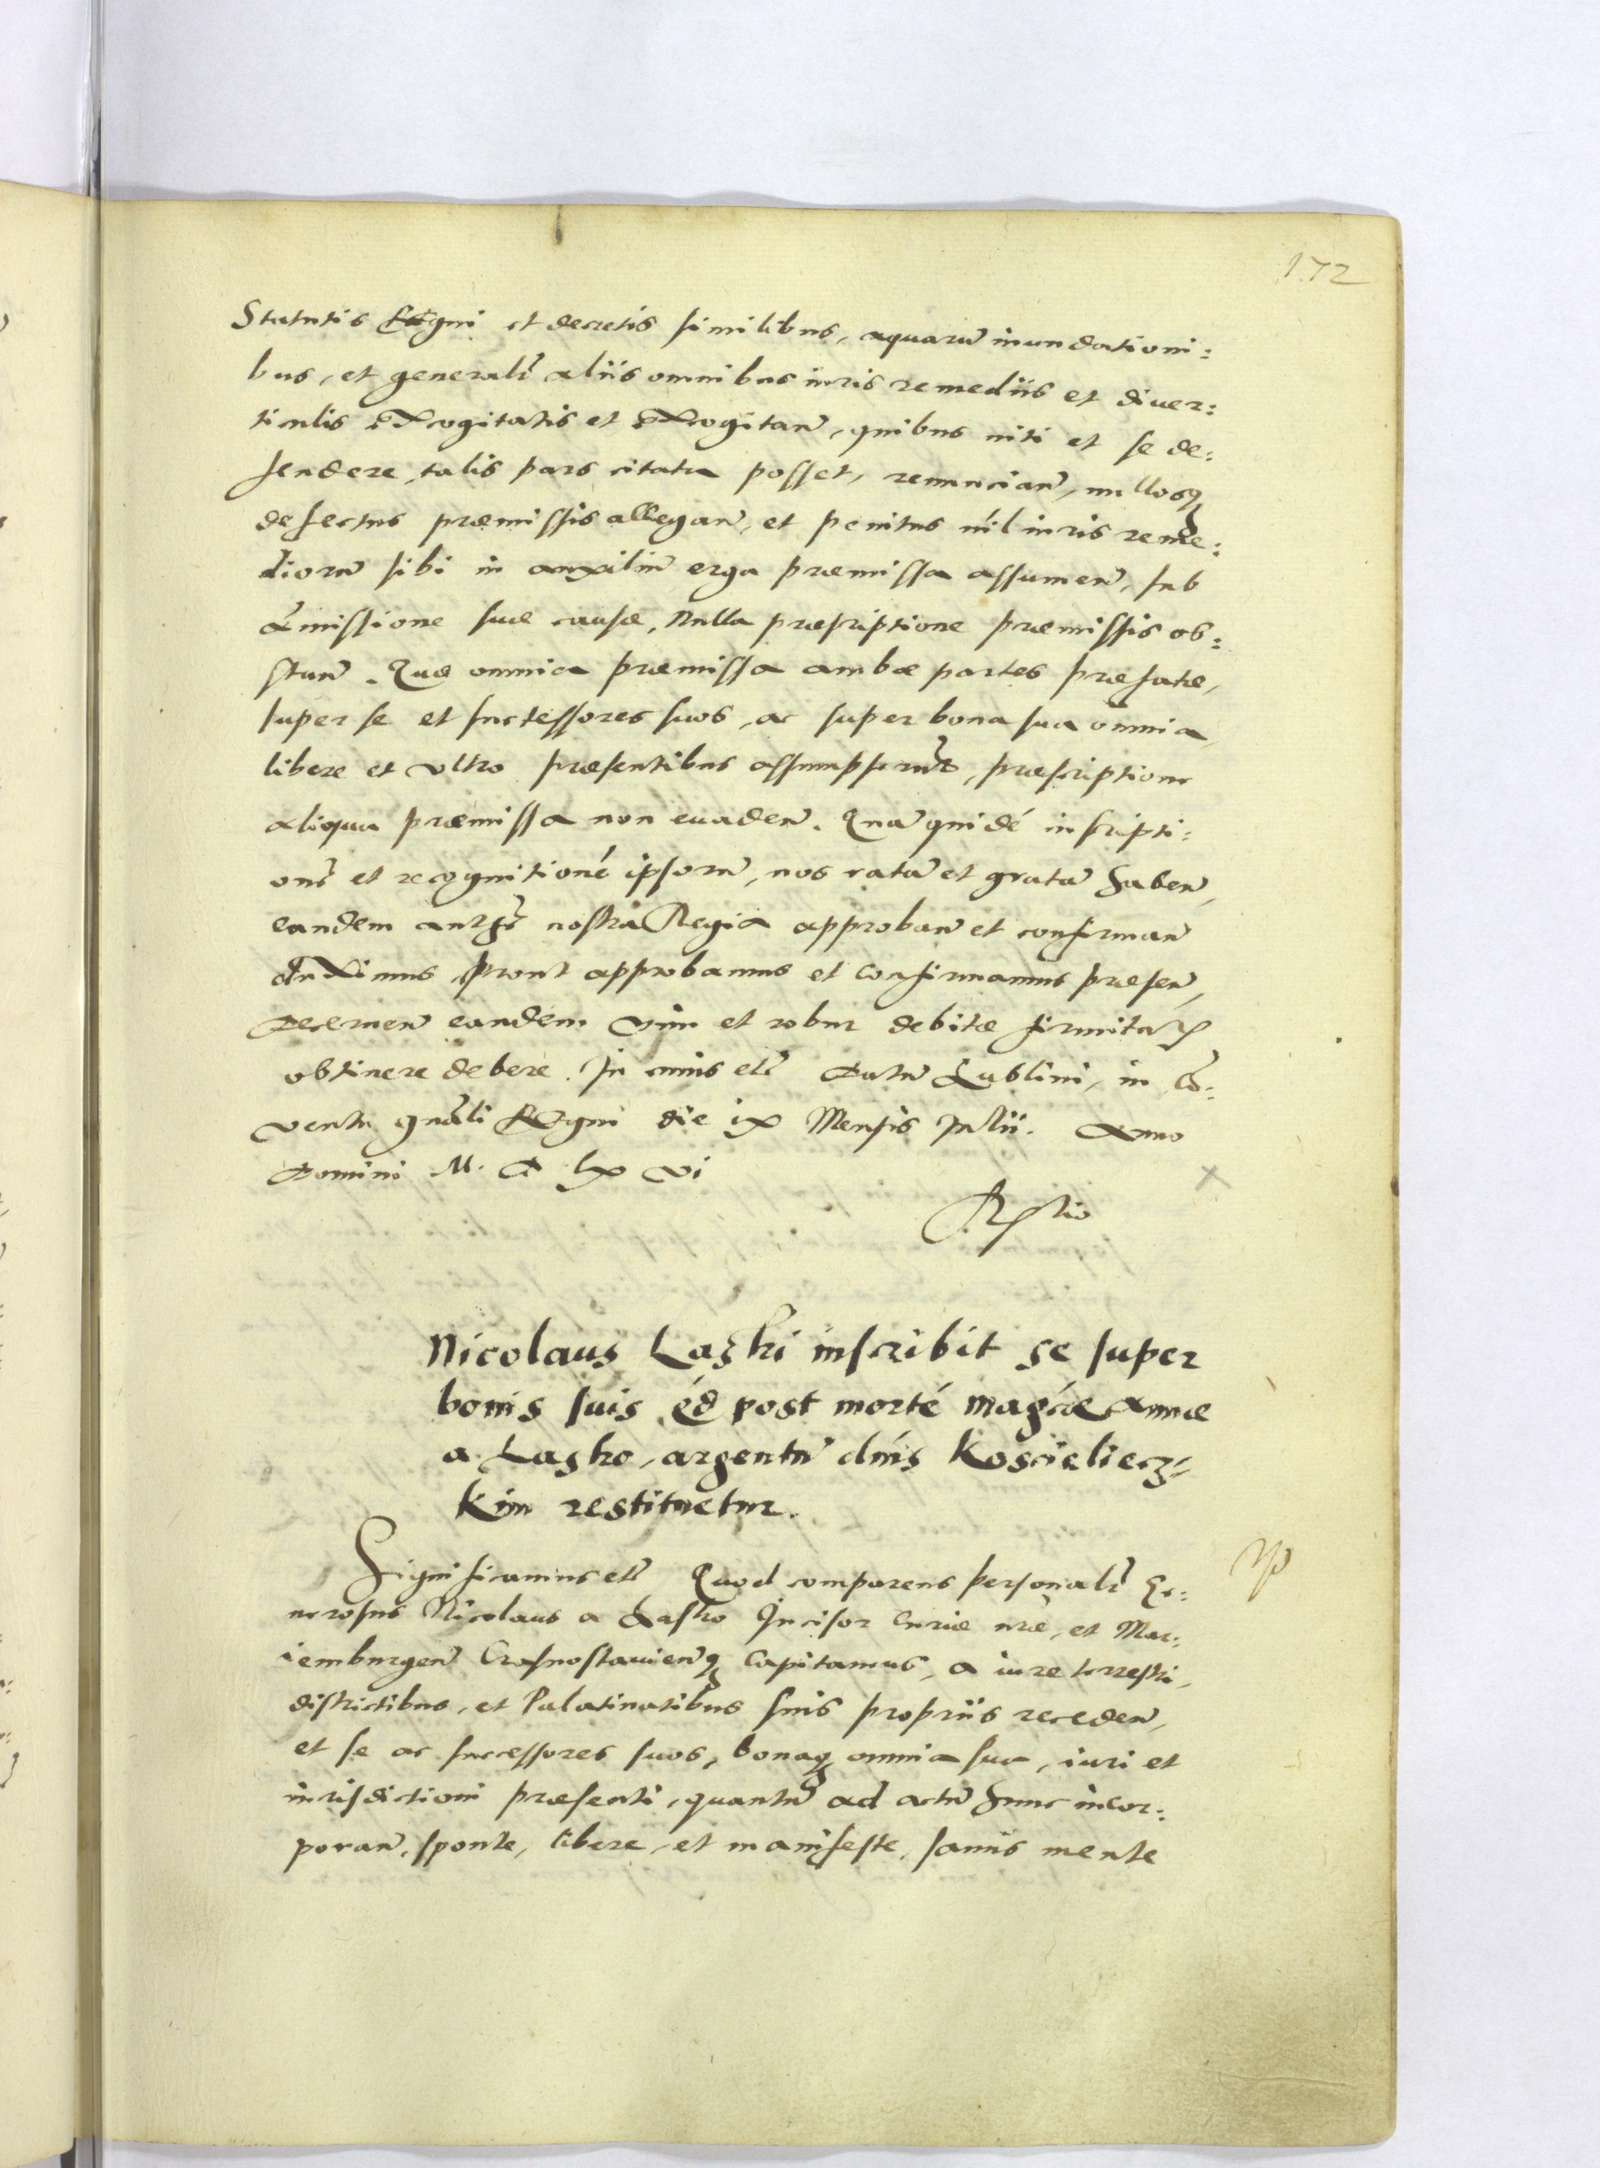 172
Statutis Regni et decretis similibus, aquarũ inundationi:
bus, et generalr̃ aliis omnibus iuris remediis et diuer:
ticulis excogitatis et excogitan̄, quibus niti et se de:
fendere talis pars citata posset, renuncian̄, nullosq3
defectus præmissis allegan̄, et penitus níl iuris reme:
diorũ sibi in auxiliũ erga præmissa assumen̄, sub
amissione suæ causæ, Nulla præscriptione præmissis ob:
stan̄. Quæ omnia præmissa ambæ partes præfatæ,
super se et successores suos, ac super bona sua omnia,
libere et vltro præsentibus assumpserunt, præscriptione
aliqua præmissa non euaden̄. Quã quidé inscripti:
onẽ et recognitioné ipsorũ, nos ratã et gratã haben̄,
eandem autẽ nostra Regia approban̄ et confirman̄
duximus, prout approbamus et confirmamus præsen̄,
Decernen̄ eandem vim et robur debitæ firmitatis
obtinere debere. In cuius etc̃ Datũ Lublini, in Cõ:
ventu gñali Regni die ix Mensis Julii. Anno
Domini M. D lx vi
Rłtio
Nicolaus Laski inscribit se super
bonis suis qd post morté magcæ Annæ
a Lasko, argentũ dnis Koscieliecz:
kim restituetur.
Significamus etc̃ Quod comparens personalr̃ Ge:
nerosus Nicolaus a Lasko Incisor Curiæ nræ, et Mar:
iemburgen̄ Crasnostauien̄q3 Capitaneus, a iure terrestri,
districtibus, et Palatinatibus suis propriis receden̄,
et se ac successores suos, bonaq3 omnia sua, iuri et
iurisdictioni præsenti, quantũ ad actũ hunc incor:
poran̄, sponte, libere, et manifeste, sanus mente